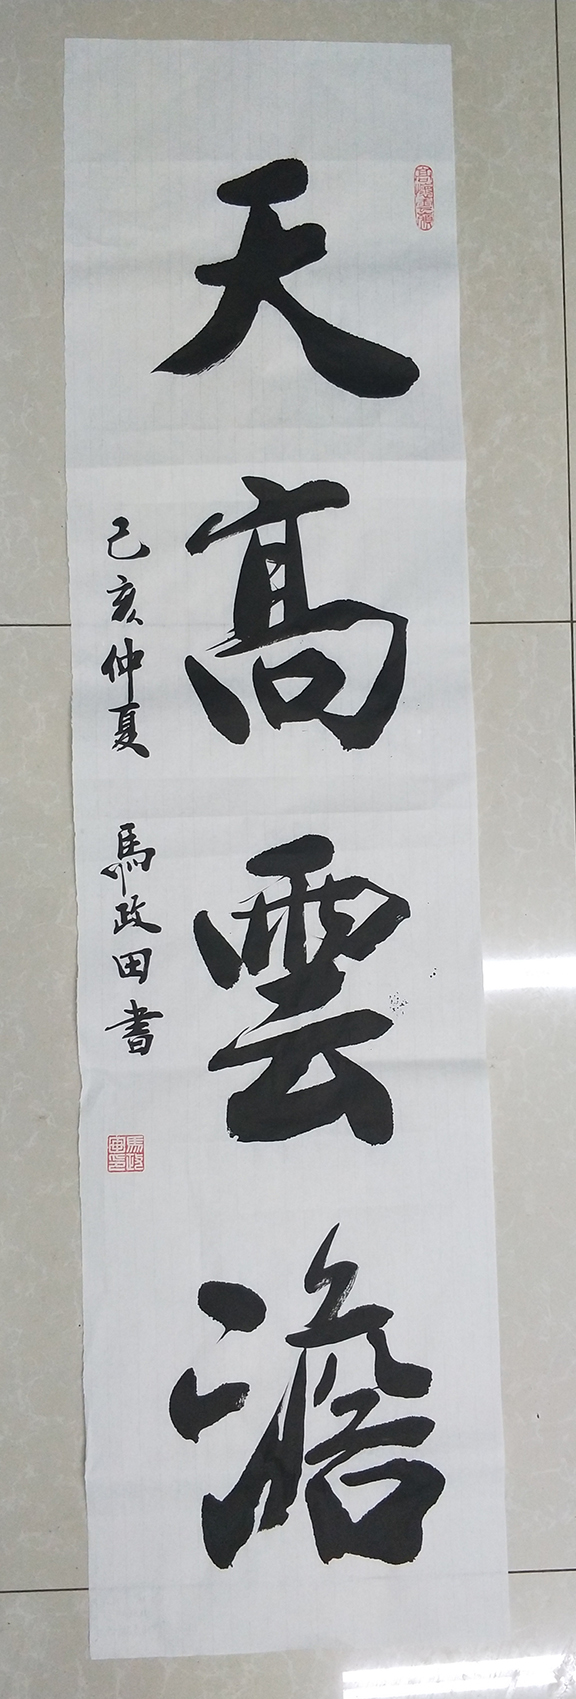 天高雲澹
己亥仲夏 馬政田書
馬政田印